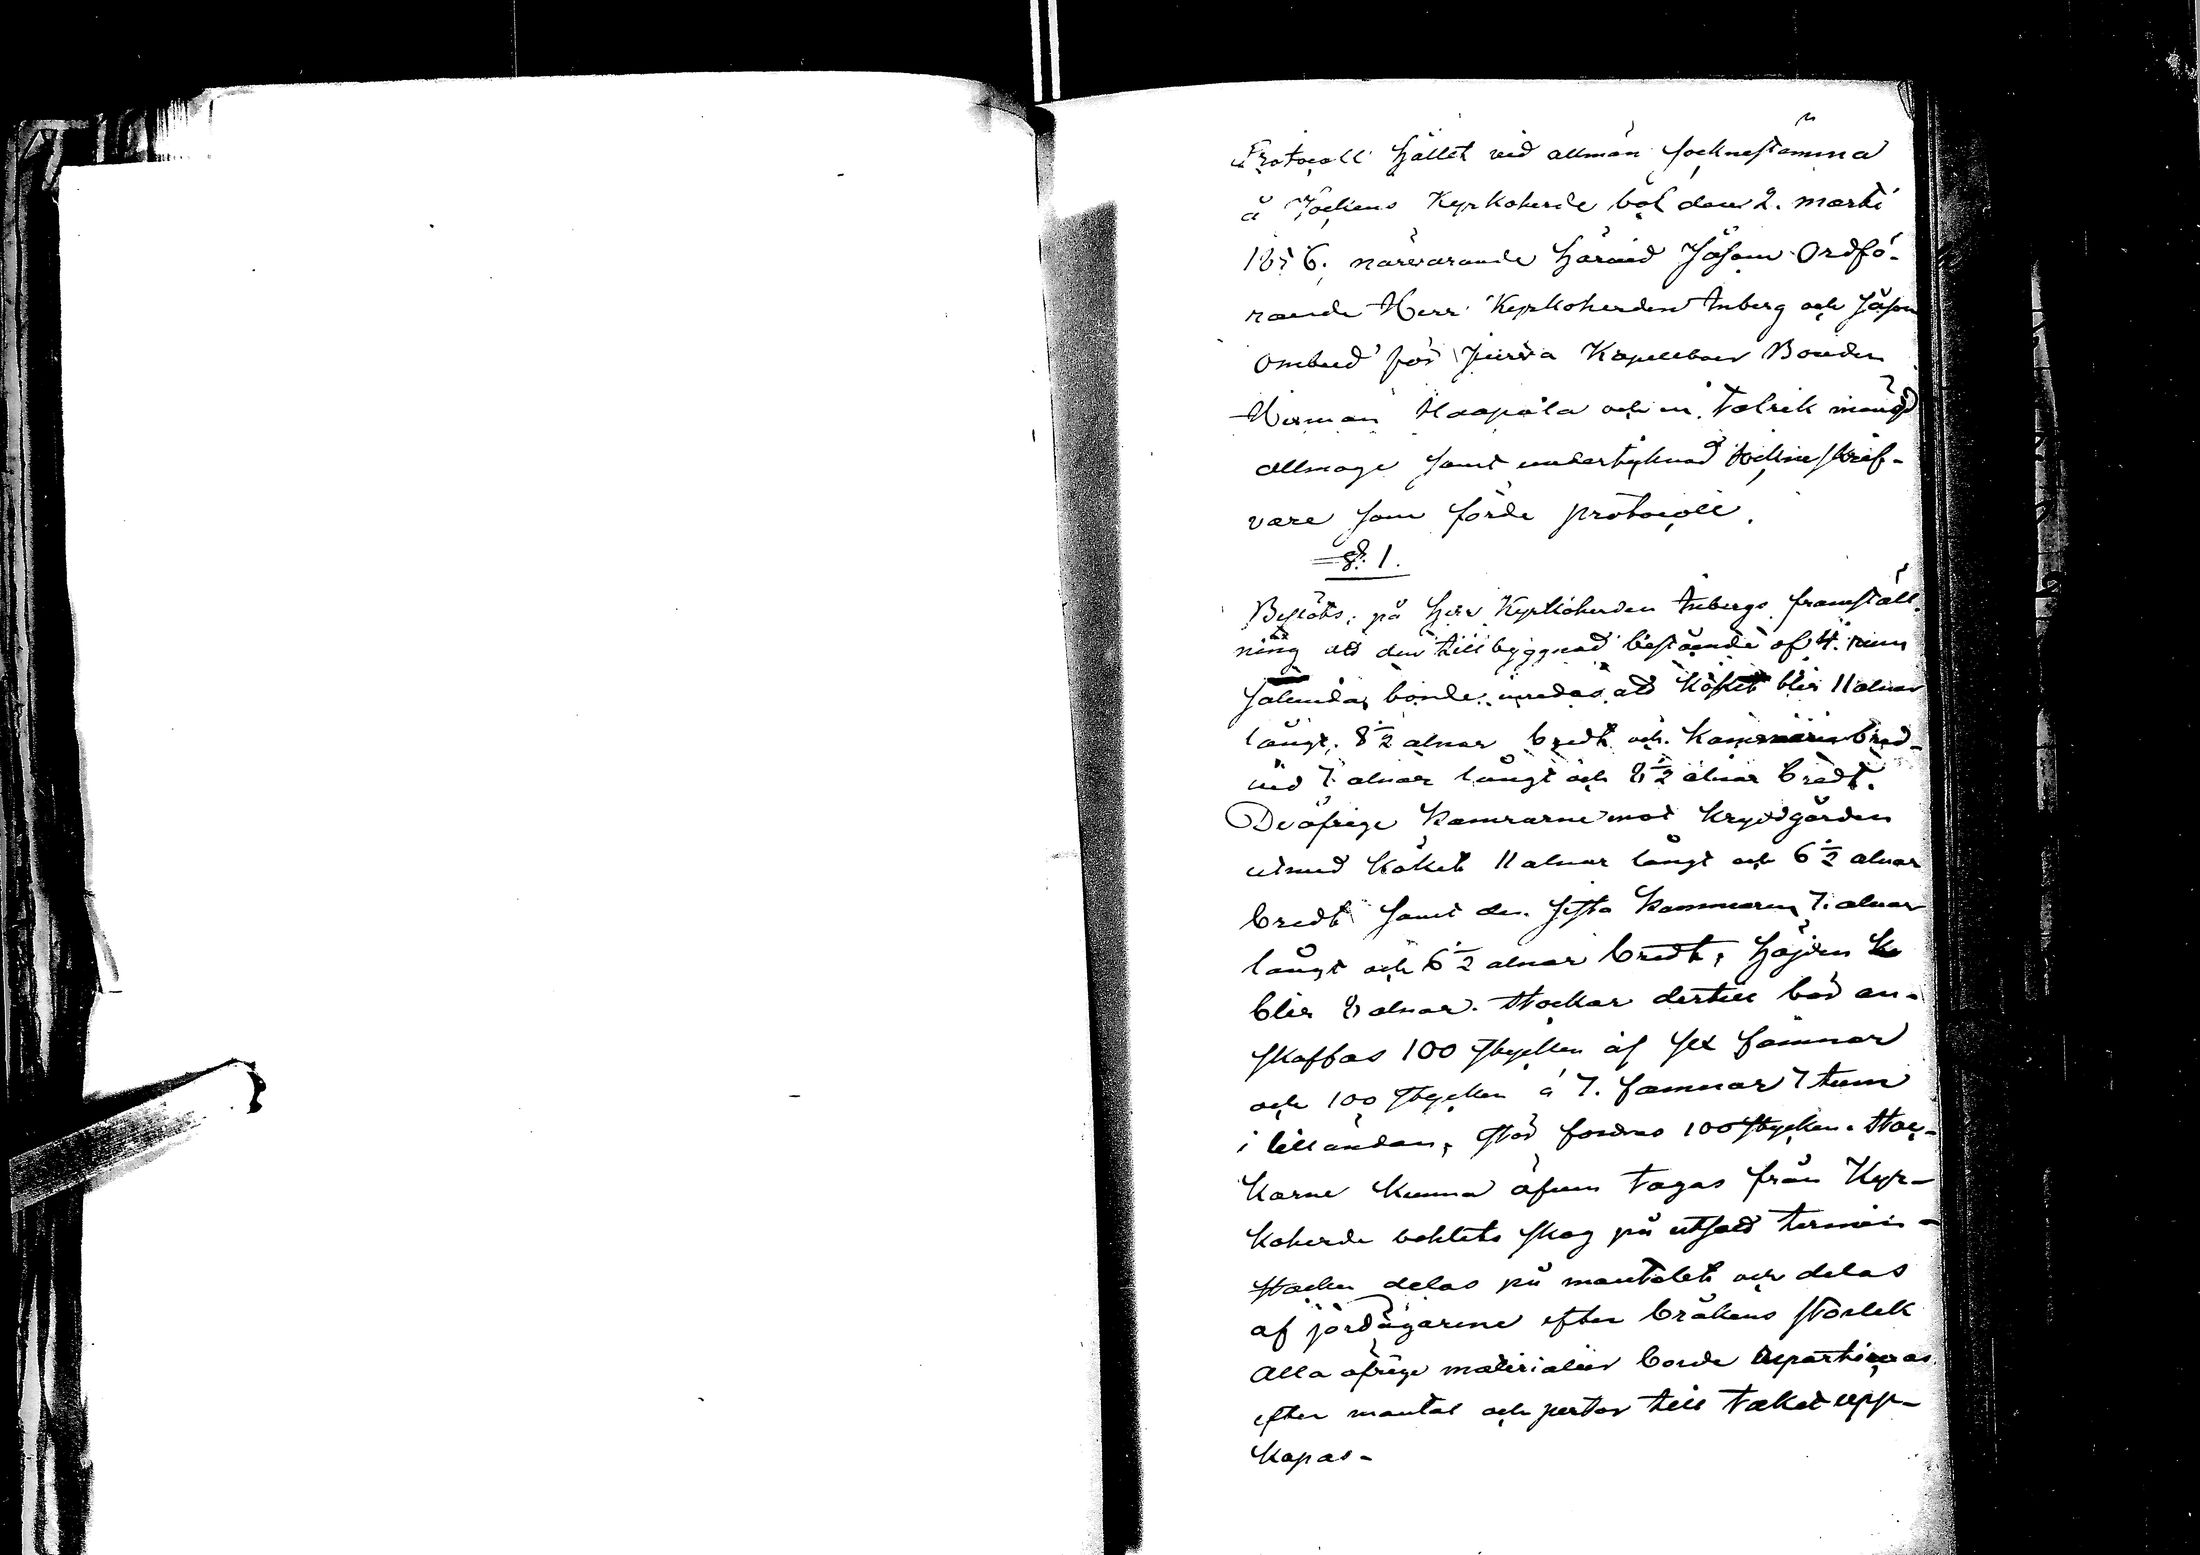 Protocoll hållet vid allmän socknestämma
å Sockens Kyrkoherde bol den 2. marti
1856. närvarande härvid såsom Ordfö-
rande Herr Kyrkoherden Inberg och såsom
ombud för Jurva Kapellboer Bonden
Herman Haapala och en talrik mängd
allmoge samt undertecknad sockneskrif-
vare som förde protocoll.
§. 1.
Beslöts, på herr Kyrkoherden Inbergs framställ-
ning att den tillbyggnad bestående af 4. rum
salunda borde inredas att köket blir 11 alnar
långt. 8 1/2 alnar bredt och Kammaren bred-
vid 7 alnar långt och 8 1/2 alnar bredt.
De öfrige Kamrarne mot krydgården
utmed köket 11 alnar långt och 6 1/2 alnar
bredt samt den sista Kammaren 7. alnar
långt och 6 1/2 alnar bredt, höjden
blir 8 alnar. Stockar dertill bör an-
skaffas 100 stycken af sex famnar
och 100 stycken á 7. famnar 7 tum
i lilländan, fordras 100 stycken. Stoc-
karne kunna äfven tagas från Kyr-
koherde bohlets skog på utsatt termin -
Stocken delas på mantalet och delas
af jordägarene efter bråkens storlek
Alla öfrige materialier borde repartieras
efter mantal och pertor till taket upp-
köpas -